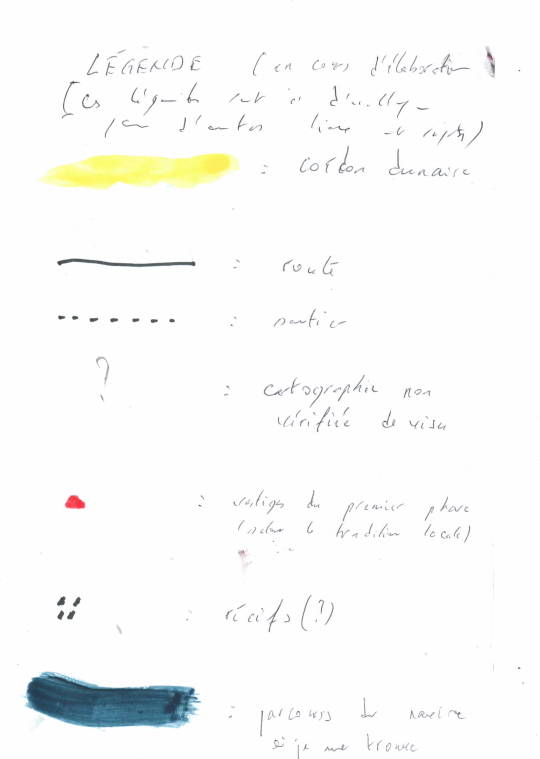 LÉGENDE (en cours d'élaboration
par d'autres
: cordon dunaire
: route
: sentier
?
: cartographie non
vérifiée de visu
: vestiges du premier phare
(selon la tradition locale)
: récifs (?)
: parcours du navire
où je me trouve